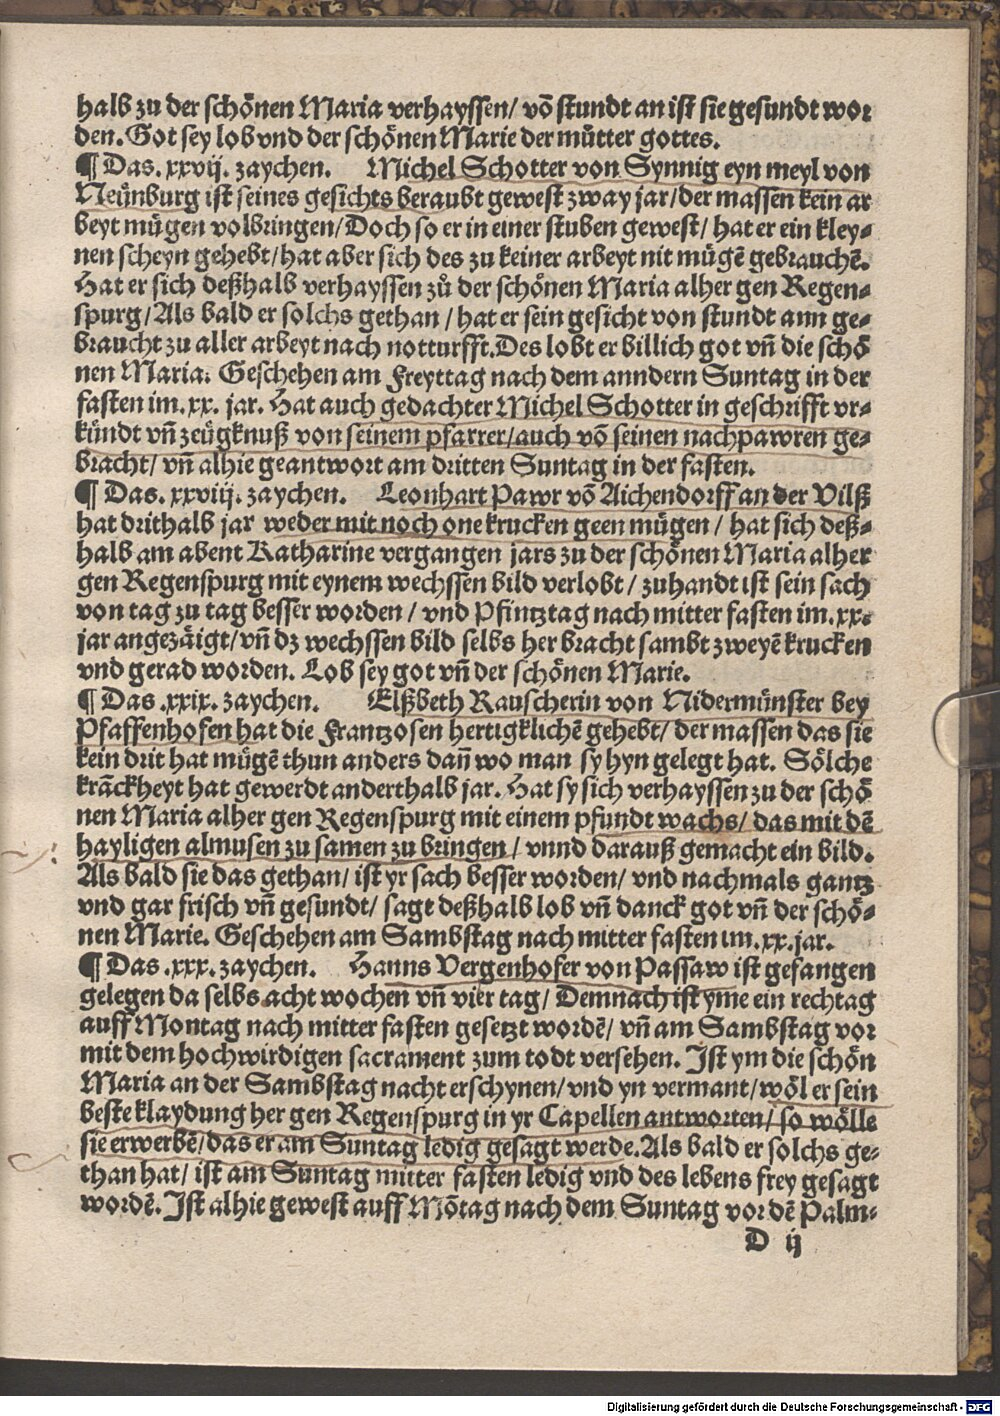 halb zu der schönen Maria verhayssen/ võ stundt an ist sie gesundt wor
den. Got sey lob vnd der schönen Marie der mütter gottes.
¶ Das. xxvij. zaychen. Michel Schotter von Synnig eyn meyl von
Neünburg ist seines gesichts beraubt gewest zway jar/ der massen kein ar
beyt mügen volbringen/ Doch so er in einer stuben gewest/ hat er ein kley⸗
nen scheyn gehebt/ hat aber sich des zu keiner arbeyt nit mügē gebrauchē.
Hat er sich deßhalb verhayssen zů der schönen Maria alher gen Regen⸗
spurg/ Als bald er solchs gethan / hat er sein gesicht von stundt ann ge⸗
braucht zu aller arbeyt nach notturfft. Des lobt er billich got vñ die schö
nen Maria. Geschehen am Freyttag nach dem anndern Suntag in der
fasten im. xx. jar. Hat auch gedachter Michel Schotter in geschrifft vr⸗
kündt vñ zeügknuß von seinem pfarrer/ auch võ seinen nachpawren ge⸗
bracht/ vñ alhie geantwort am dritten Suntag in der fasten.
¶ Das. xxviij. zaychen. Leonhart Pawr võ Aichendorff an der Vilß
hat drithalb jar weder mit noch one krucken geen mügen / hat sich deß⸗
halb am abent Katharine vergangen jars zu der schönen Maria alher
gen Regenspurg mit eynem wechssen bild verlobt / zuhandt ist sein sach
von tag zu tag besser worden / vnd Pfintztag nach mitter fasten im. xx.
jar angezäigt/ vñ dz wechssen bild selbs her bracht sambt zweyē krucken
vnd gerad worden. Lob sey got vñ der schönen Marie.
¶ Das .xxix. zaychen. Elßbeth Rauscherin von Nidermünster bey
Pfaffenhofen hat die Frantzosen hertigklichē gehebt/ der massen das sie
kein drit hat mügē thun anders dañ wo man sy hyn gelegt hat. Sölche
krãckheyt hat gewerdt anderthalb jar. Hat sy sich verhayssen zu der schö
nen Maria alher gen Regenspurg mit einem pfundt wachs/ das mit dē
hayligen almusen zu samen zu bringen / vnnd darauß gemacht ein bild.
Als bald sie das gethan/ ist yr sach besser worden/ vnd nachmals gantz
vnd gar frisch vñ gesundt/ sagt deßhalb lob vñ danck got vñ der schö⸗
nen Marie. Geschehen am Sambstag nach mitter fasten im. xx. jar.
¶ Das .xxx. zaychen. Hanns Vergenhofer von Passaw ist gefangen
gelegen da selbs acht wochen vñ vier tag/ Demnach ist yme ein rechtag
auff Montag nach mitter fasten gesetzt wordē/ vñ am Sambstag vor
mit dem hochwirdigen sacrament zum todt versehen. Ist ym die schön
Maria an der Sambstag nacht erschynen/ vnd yn vermant/ wöl er sein
beste klaydung her gen Regenspurg in yr Capellen antworten/ so wölle
sie erwerbē/ das er am Suntag ledig gesagt werde. Als bald er solchs ge⸗
than hat/ ist am Suntag mitter fasten ledig vnd des lebens frey gesagt
wordē. Ist alhie gewest auff Mõtag nach dem Suntag vor dē Palm⸗
D ij
Digitalisierung gefördert durch die Deutsche Forschungsgemeinschaft - DFG